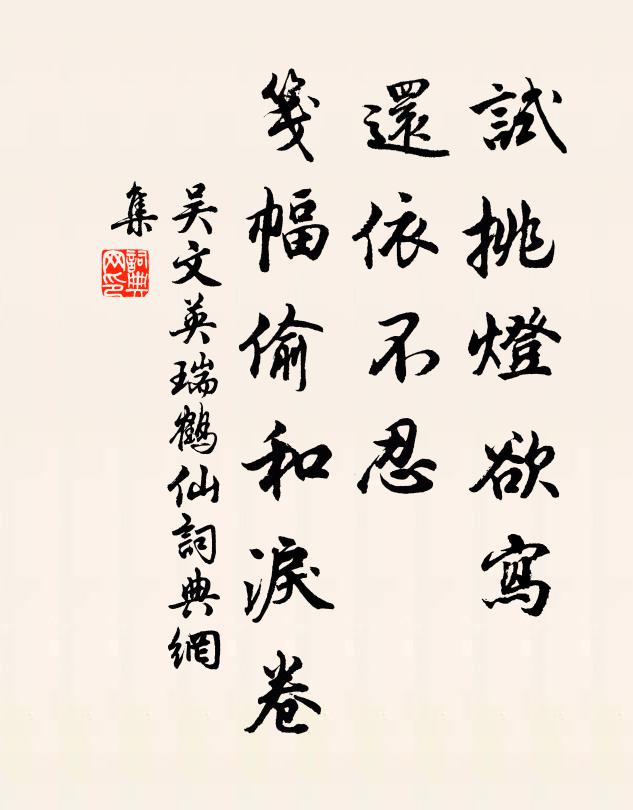 試挑燈欲寫
還依不忍
箋幅偷和淚卷
吴文英瑞鶴仙詞典網
集
詞典网印